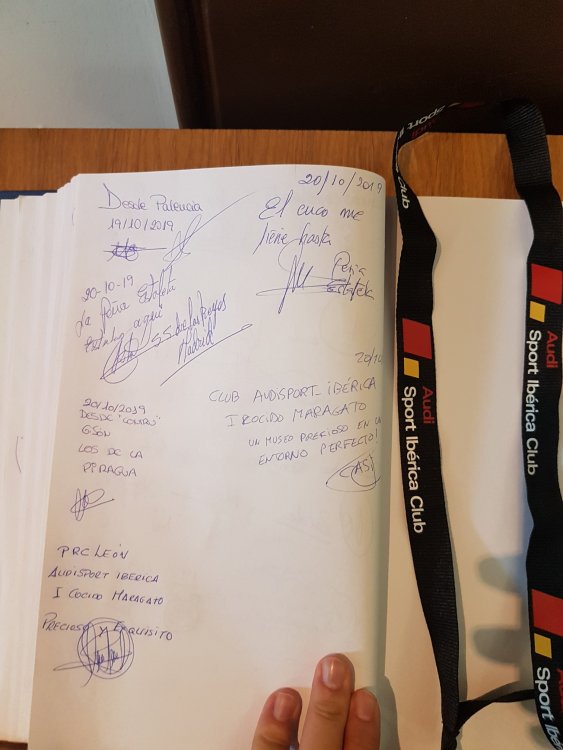 Desde Palencia
19/10/2019
20-10-19
La Peña
aquí
S.S. de los Reyes
Madrid
20/10/2019
DESDE
GIJÓN
LOS DE LA
PIRAGUA
PRC LEÓN
AUDISPORT IBERICA
I COCIDO MARAGATO
PRECIOSO Y EXQUISITO
20/10/2019
El cuco me
tiene hasta
Peña
20/10
CLUB AUDISPORT-IBÉRICA
I COCIDO MARAGATO
UN MUSEO PRECIOSO EN UN
ENTORNO PERFECTO!
CASI
Sport Ibérica Club
Audi
Sport Ibérica Club
Audi
Sport Ibérica Club
Sport Ibérica